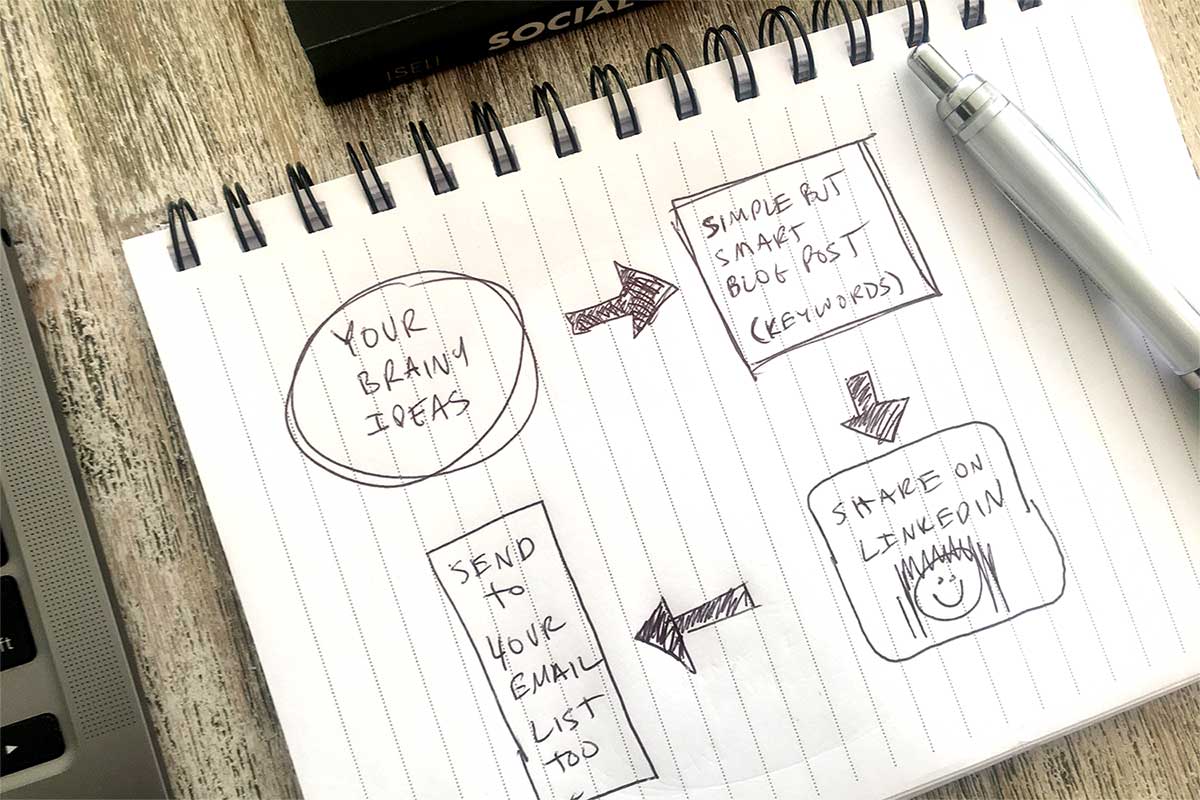 SOCIAL
ISEI
YOUR
BRAINY
IDEAS
SIMPLE BUT
SMART
BLOG POST
(KEYWORDS)
SHARE ON
LINKEDIN
SEND
to
YOUR
EMAIL
LIST
TOO
ft